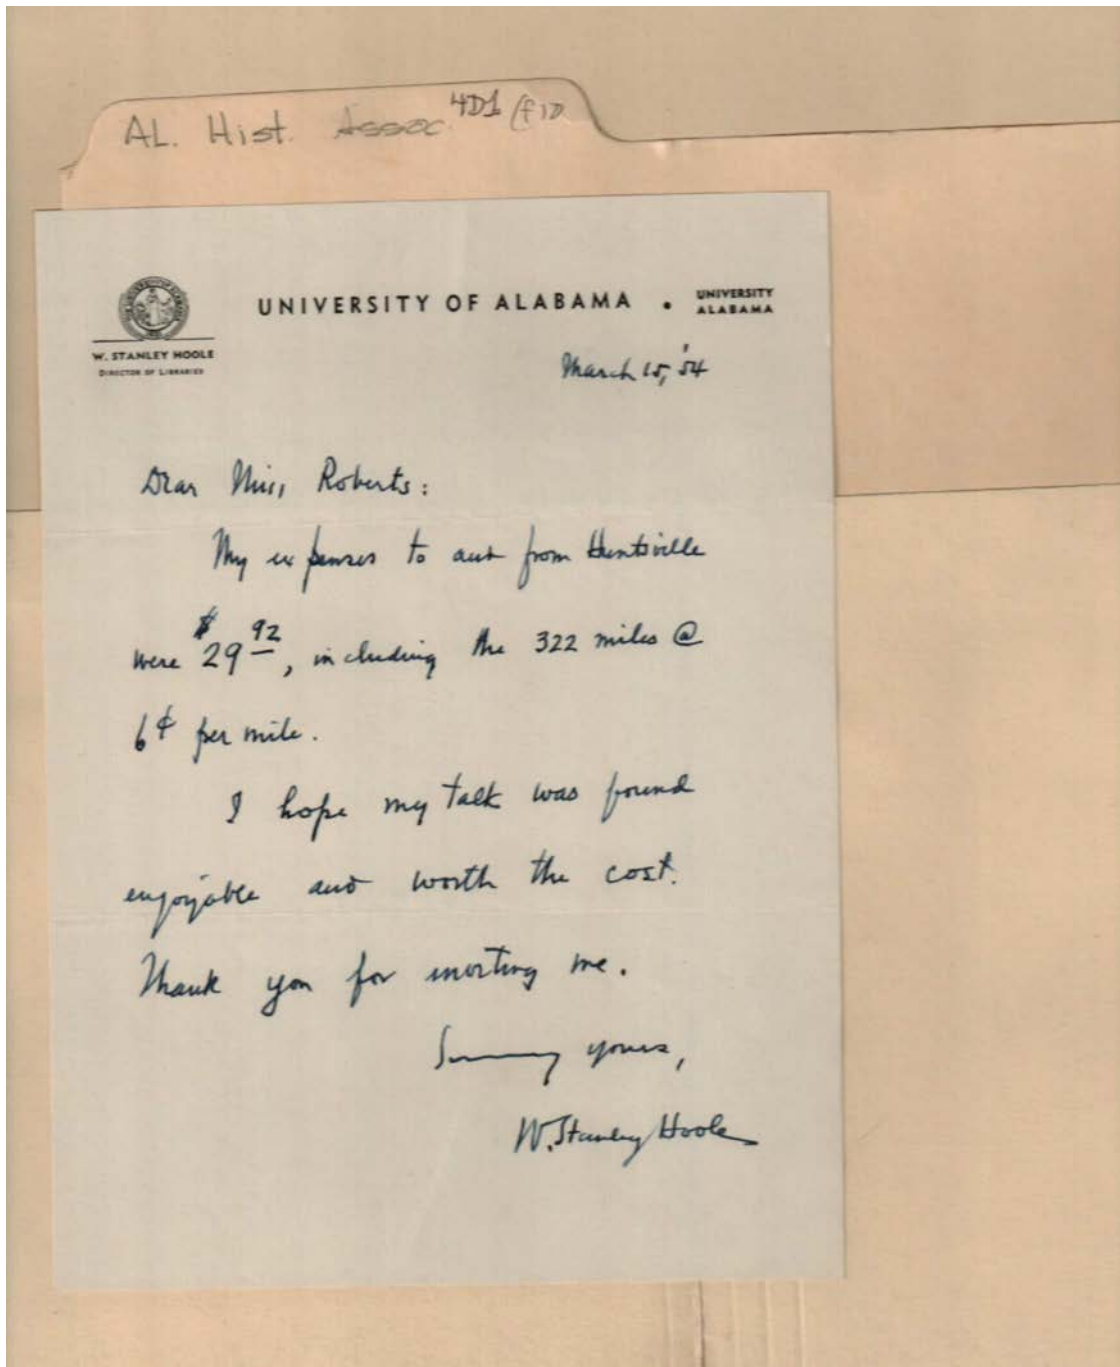 AL. Hist. Assoc. 4D1
UNIVERSITY OF ALABAMA • UNIVERSITY
ALABAMA
W. STANLEY HOOLE
DIRECTOR OF LIBRARIES
March 15, '54
Dear Miss Roberts:
My expenses to and from Huntsville
were $29 92, including the 322 miles @
6¢ per mile.
I hope my talk was found
enjoyable and worth the cost.
Thank you for inviting me.
yours,
W. Stanley Hoole